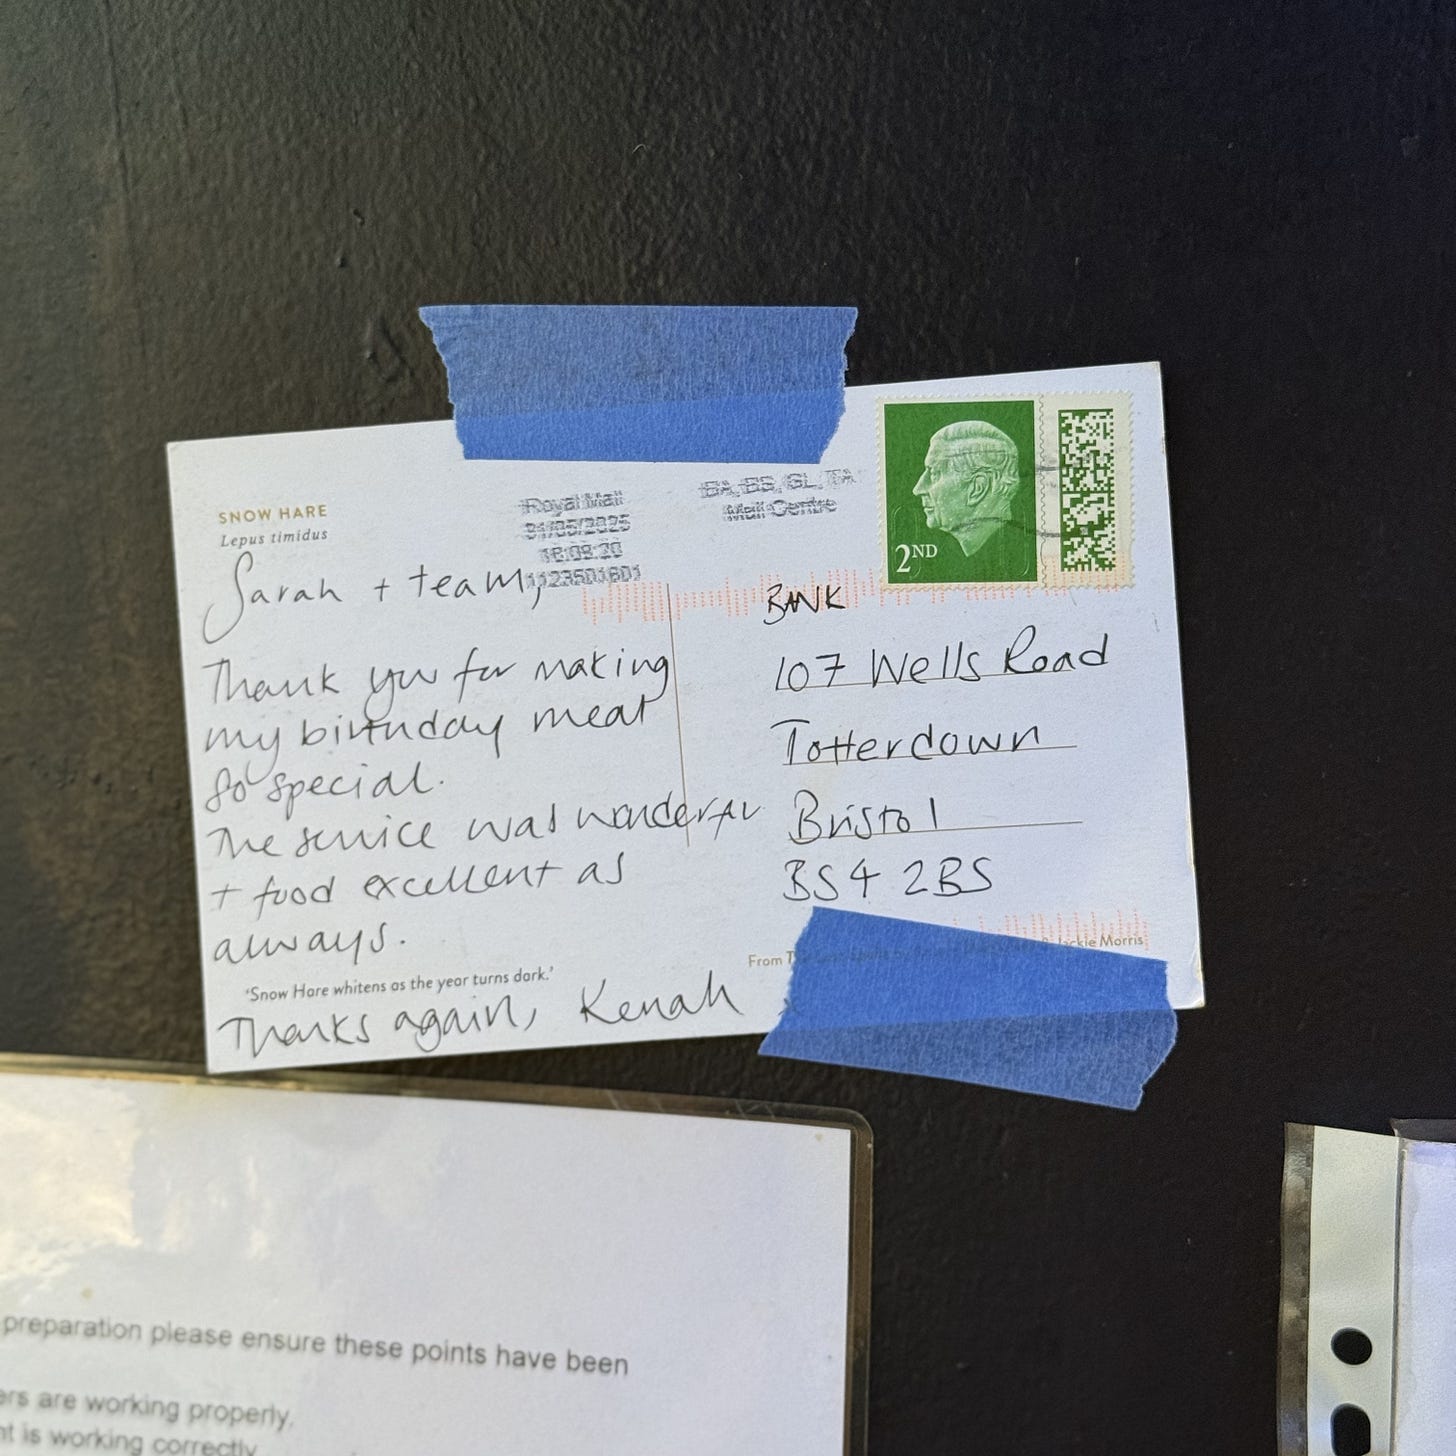 SNOW HARE
Lepus timidus
Royal Mail
31/05/2025
16:09:20
1123501601
BA, BS, GL, TA
Mail Centre
2ND
Sarah + team,
Thank you for making
my birthday meal
so special.
The service was wonderful
+ food excellent as
always.
'Snow Hare whitens as the year turns dark.'
Thanks again, Kenah
BANK
107 Wells Road
Totterdown
Bristol
BS4 2BS
From The Lost Spells by & Jackie Morris
preparation please ensure these points have been
are working properly.
is working correctly